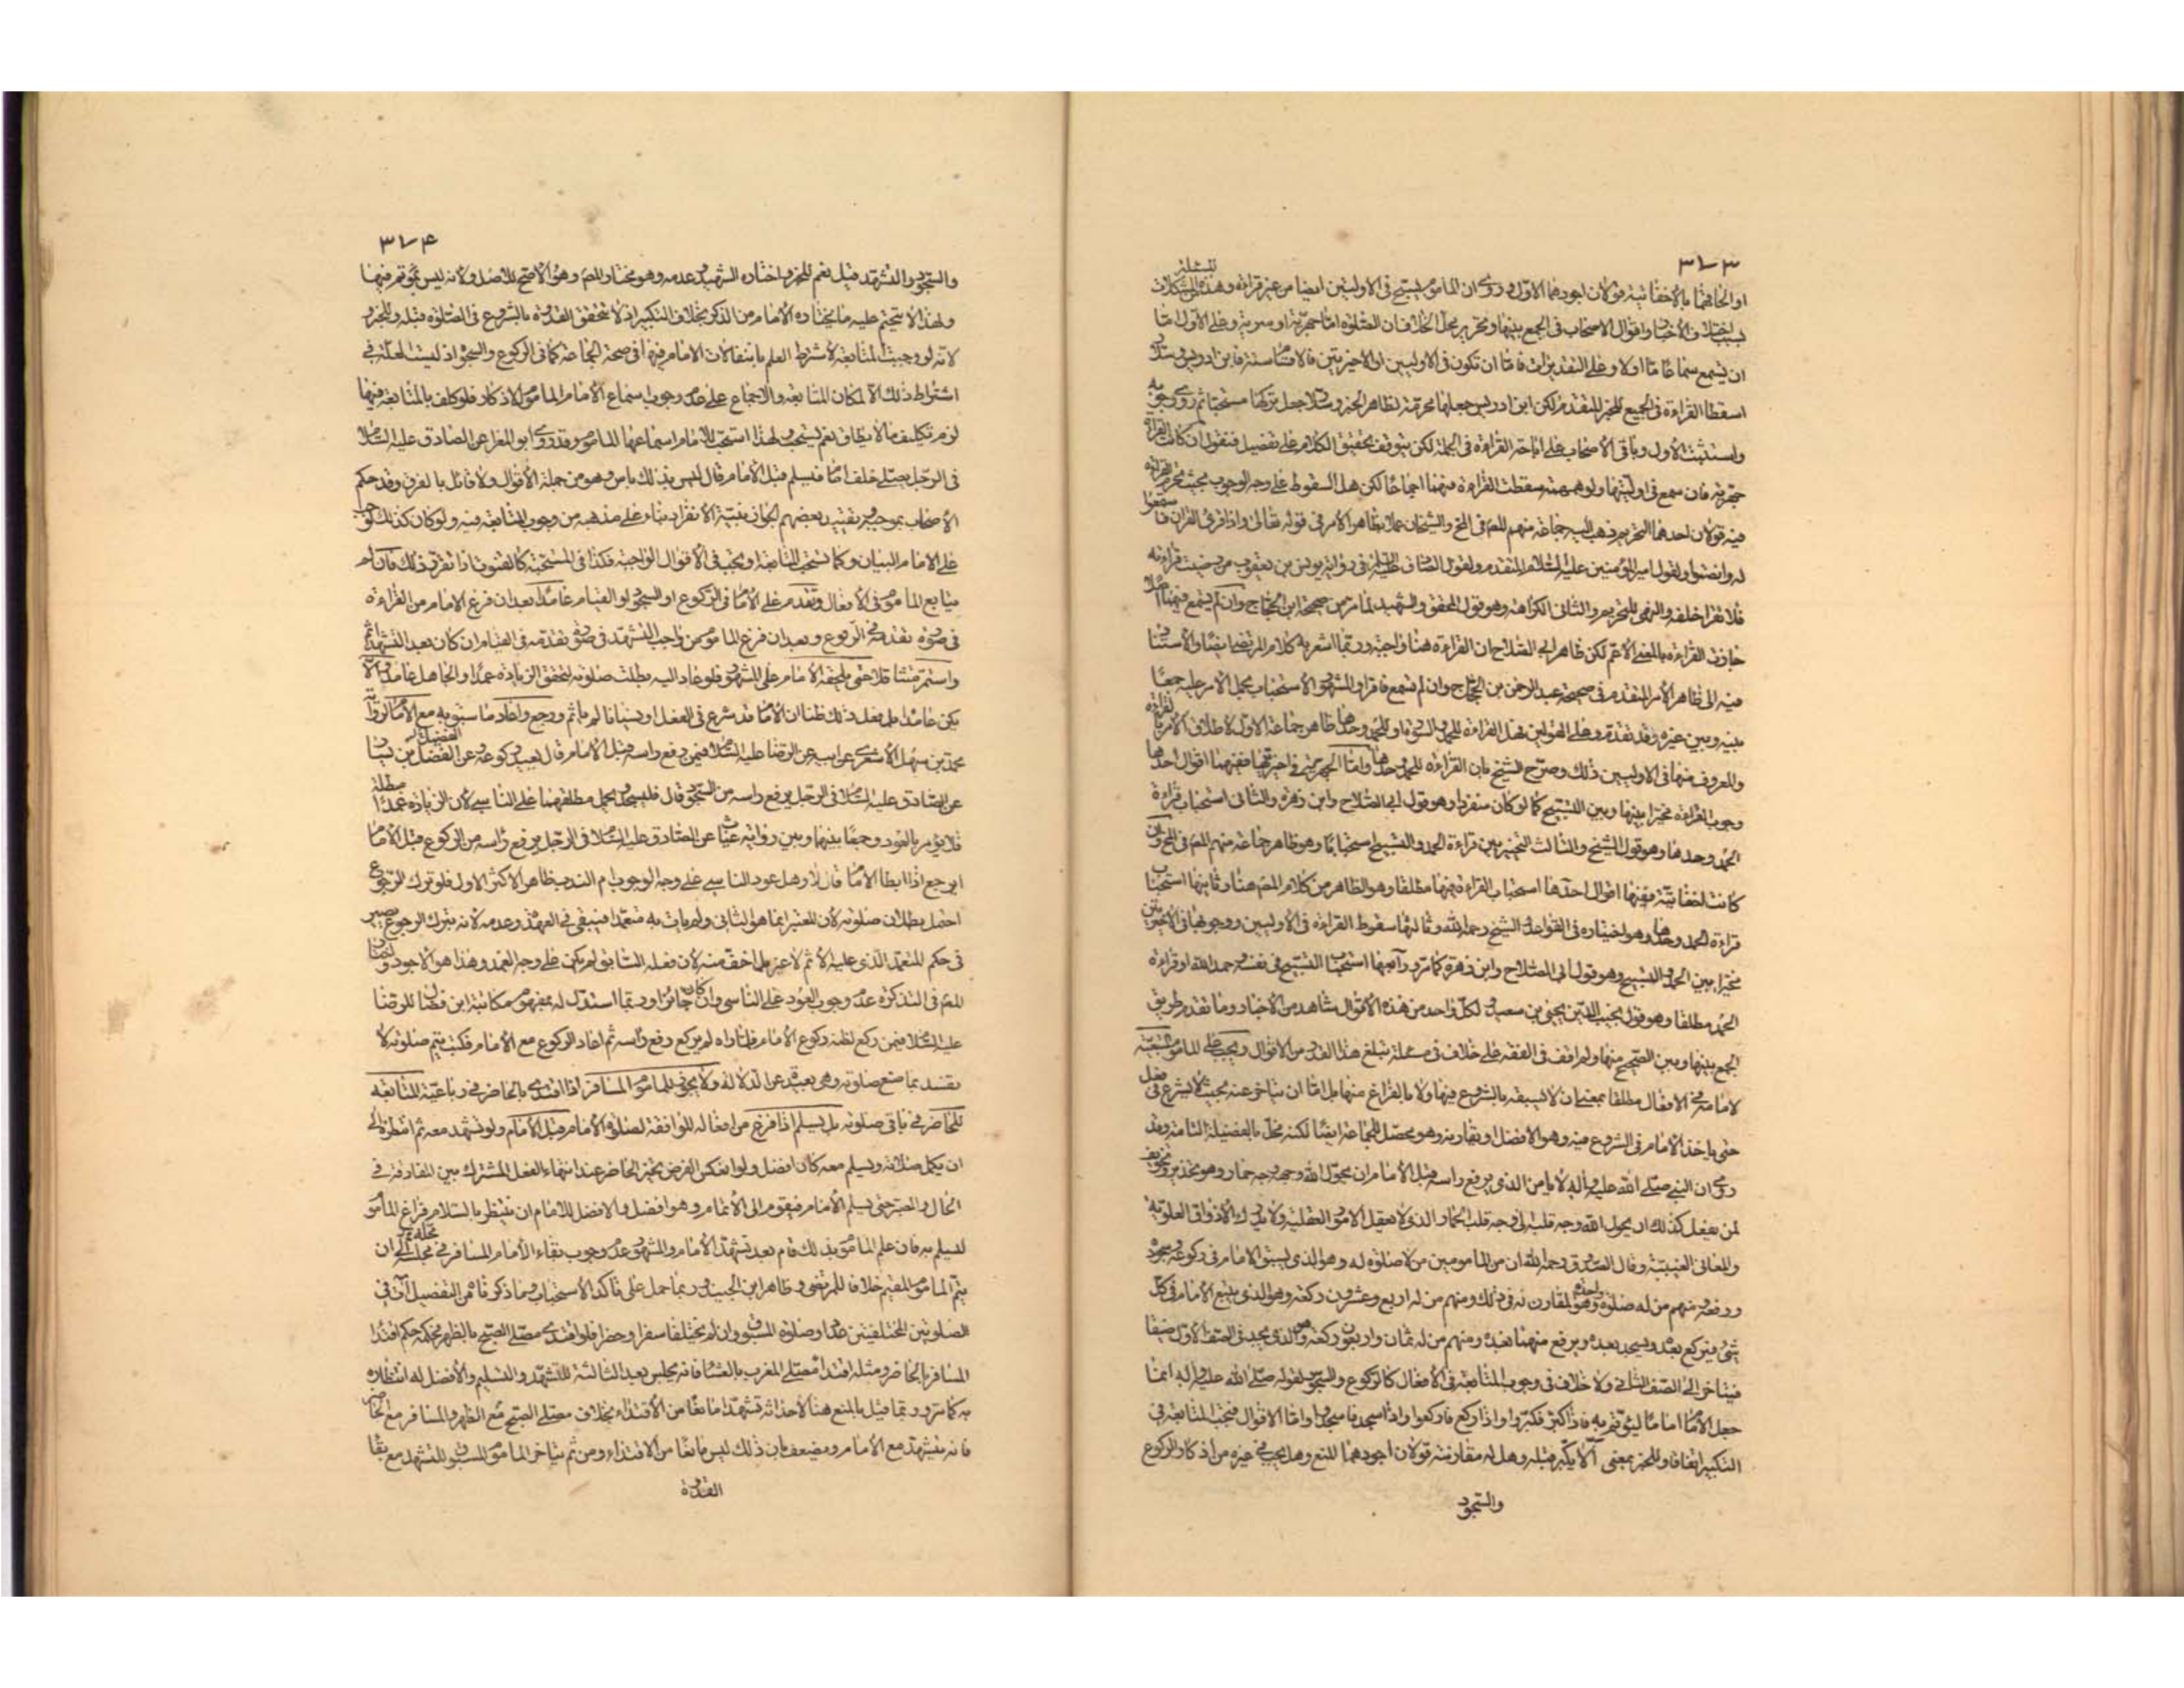 ٣٧٣
او الحاقهما بالاخفاتية قولان اجودهما الاول وروى ان المأموم يسبح في الاوليين ايضا من غير قراءة وهذه المسئلة من المشكلات
بسبب اختلاف الاخبار واقوال الاصحاب في الجمع بينها وتحرير محل الخلاف ان الصلوة اما جهرية او سرية وعلى الاول اما
ان يسمع سماعا ما اولا وعلى التقديرات فاما ان تكون في الاوليين او الاخيرتين فالاقسام ستة فابن ادريس وسلار
اسقطا القراءة في الجميع للخبر المتقدم لكن ابن ادريس جعلها محرمة لظاهر الخبر وسلار جعل تركها مستحبا ثم روى وجوبه
واستثبت الاول وباقى الاصحاب على اباحة القراءة في الجملة لكن يتوقف تحقيق الكلام على تفصيل فنقول ان كانت القراءة
جهرية فان سمع في اوليتها ولو همهمة سقطت القراءة فيهما اجماعا لكن هل السقوط على وجه الوجوب بحيث تحرم القراءة
فيه قولان احدهما التحريم ذهب اليه جماعة منهم المص في المخ والشيخان عملا بظاهر الامر في قوله تعالى واذا قرئ القران فاستمعوا
له وانصتوا ولقول امير المؤمنين عليه السلام المتقدم ولقول الصادق عليه السلام في رواية يونس بن يعقوب من رضيت قراءته
فلا تقرا خلفه والنهى للتحريم والثانى الكراهة وهو قول المحقق والشهيد لما مر من صحيحة ابن الحجاج وان لم يسمع فيهما اصلا
جازت القراءة بالمعنى الاعم لكن ظاهر ابى الصلاح ان القراءة هنا واجبة وربما اشعر به كلام المرتضى ايضا والاستناد
فيه الى ظاهر الامر المتقدم في صحيحة عبد الرحمن بن الحجاج وان لم تسمع فاقرا والمشهور الاستحباب بحمل الامر عليه جمعا
بينه وبين غيره وقد تقدم وعلى القولين فهل القراءة للحمد والسورة او للحمد وحدها ظاهر جماعة الاول لاطلاق الامر بالقراءة
والمعروف منها في الاوليين ذلك وصرح الشيخ بان القراءة للحمد وحدها واما الجهرية في اخيرتيها ففيهما اقوال احدها
وجوب القراءة مخيرا بينها وبين التسبيح كما لو كان منفردا وهو قول ابى الصلاح وابن زهرة والثانى استحباب قراءة
الحمد وحدها وهو قول الشيخ والثالث التخيير بين قراءة الحمد والتسبيح استحبابا وهو ظاهر جماعة منهم المص في المخ وان
كانت اخفاتية ففيها اقوال احدها استحباب القراءة فيها مطلقا وهو الظاهر من كلام المص هنا وثانيها استحباب
قراءة الحمد وحدها وهو اختياره في القواعد والشيخ رحمه الله وثالثها سقوط القراءة في الاوليين ووجوبها في الاخيرتين
مخيرا بين الحمد والتسبيح وهو قول ابى الصلاح وابن زهرة كما مر ورابعها استحباب التسبيح في نفسه وحمد الله او قراءة
الحمد مطلقا وهو قول نجيب الدين يحيى بن سعيد ولكل واحد من هذه الاقوال شاهد من الاخبار وما تقدم طريق
الجمع بينها وبين الصحيح منها ولم اقف في الفقه على خلاف في مسئلة تبلغ هذا القدر من الاقوال ويجب على المأموم التبعية
لامامه في الافعال مطلقا بمعنى ان لا يسبقه بالشروع فيها ولا بالفراغ منها بل اما ان يتأخر عنه بحيث لا يشرع في فعل
حتى ياخذ الامام في الشروع فيه وهو الافضل او يقارنه وهو محصل للجماعة ايضا لكنه مخل بالفضيلة التامة وقد
روى ان النبى صلى الله عليه واله لا يامن الذى يرفع راسه قبل الامام ان يحول الله وجهه وجه حمار وهو تحذير وتخويف
لمن يفعل كذلك ان يحول الله وجه قلبه الى وجه قلب الحمار الذى لا يعقل الامور العقلية ولا يدرك الاذواق العلوية
والمعانى الغيبية وقال الصدوق رحمه الله ان من المأمومين من لا صلوة له وهو الذى يسبق الامام في ركوعه وسجوده
ورفعه ومنهم من له صلوة واحدة وهو المقارن له في ذلك ومنهم من له اربع وعشرون ركعة وهو الذى يتبع الامام في كل
شئ فيركع بعده ويسجد بعده ويرفع منهما بعده ومنهم من له ثمان واربعون ركعة وهو الذى يجد في الصف الاول ضيقا
فيتاخر الى الصف الثانى ولا خلاف في وجوب المتابعة في الافعال كالركوع والسجود لقوله صلى الله عليه واله انما
جعل الامام اماما ليؤتم به فاذا كبر فكبروا واذا ركع فاركعوا واذا سجد فاسجدوا واما الاقوال فتجب المتابعة في
التكبير اتفاقا وللخبر بمعنى ان لا يكبر قبله وهل له مقارنته قولان اجودهما المنع وهل يجب في غيره من اذكار الركوع
والسجود
٣٧۴
والسجود والتشهد قيل نعم للخبر واختاره الشهيد وعدمه وهو مختار المص وهو الاصح للاصل ولانه ليس بمؤتم فيها
ولهذا لا يتحتم عليه ما يختاره الامام من الذكر بخلاف التكبير اذ لا يتحقق القدوة بالشروع في الصلوة قبله وللخبر و
لانه لو وجبت المتابعة لاشترط العلم بانتقالات الامام فيها في صحة الجماعة كما في الركوع والسجود اذ ليست العلة في
اشتراط ذلك الا لمكان المتابعة والاجماع على عدم وجوب اسماع الامام المأموم الاذكار فلو كلف بالمتابعة فيها
لزم تكليف ما لا يطاق نعم يستحب ولهذا استحب للامام اسماعها للمأموم وقد روى ابو المغرا عن الصادق عليه السلام
في الرجل يصلى خلف امام فيسلم قبل الامام قال ليس بذلك باس وهو من جملة الاقوال ولا قائل بالفرق وقد حكم
الاصحاب بموجبه وتقييد بعضهم الجواز بنية الانفراد بناء على مذهبه من وجوب المتابعة فيه ولو كان كذلك لوجب
على الامام البيان وكما تستحب المتابعة او تجب في الاقوال الواجبة فكذا في المستحبة كالقنوت اذا تقرر ذلك فان لم
يتابع المأموم في الافعال وتقدم على الامام في الركوع او السجود او القيام عامدا بعد ان فرغ الامام من القراءة
في صورة تقدمه في الركوع وبعد ان فرغ المأموم من واجب التشهد في صورة تقدمه في القيام ان كان بعد التشهد اثم
واستمر متثاقلا حتى يلحقه الامام على المشهور فلو عاد اليه بطلت صلوته لتحقق الزيادة عمدا والجاهل عامد والا
يكن عامدا بل فعل ذلك ظنا ان الامام قد شرع في الفعل او نسيانا لم ياثم ورجع واعاد ما سبق به مع الامام لرواية
محمد بن سهل الاشعرى عن ابيه عن الرضا عليه السلام فيمن رفع راسه قبل الامام قال يعيد ركوعه وعن الفضيل بن يسار
عن الصادق عليه السلام في الرجل يرفع راسه من السجود قال فليسجد ويحمل مطلقهما على الناسى لان الزيادة عمدا مبطلة
فلا يؤمر بالعود وجمعا بينها وبين رواية غياث عن الصادق عليه السلام في الرجل يرفع راسه من الركوع قبل الامام
ايرجع اذا ابطا الامام قال لا وهل عود الناسى على وجه الوجوب ام الندب ظاهر الاكثر الاول فلو ترك الرجوع
احتمل بطلان صلوته لان المعتبر انما هو الثانى ولم يات به متعمدا فيبقى في العهدة وعدمه لانه بترك الرجوع يصير
في حكم المتعمد الذى عليه الاثم لا غير بل اخف منه لان فعله السابق لم يكن على وجه العمد وهذا هو الاجود واختار
المص في التذكرة عدم وجوب العود على الناسى وان كان جائزا وربما استدل له بمفهوم مكاتبة ابن فضال للرضا
عليه السلام فيمن ركع لظنه ركوع الامام فلما راه لم يركع رفع راسه ثم اعاد الركوع مع الامام فكتب يتم صلوته لا
يفسد بما صنع صلوته وهى بعيدة عن الدلالة ولا يجوز للمأموم المسافر اذا اقتدى بالحاضر في رباعية المتابعة
للحاضر في باقى صلوته بل يسلم اذا فرغ من افعاله الموافقة لصلوة الامام قبل الامام ولو تشهد معه ثم انتظره الى
ان يكمل صلاته ويسلم معه كان افضل ولو انعكس الفرض تخير الحاضر عند انتهاء الفعل المشترك بين المفارقة في
الحال والصبر حتى يسلم الامام فيقوم الى الاتمام وهو افضل والافضل للامام ان ينتظر بالسلام فراغ المأموم
ليسلم به فان علم المأموم بذلك قام بعد تشهد الامام والمشهور عدم وجوب بقاء الامام المسافر في مجلسه الى ان
يتم المأموم المقيم خلافا للمرتضى وظاهر ابن الجنيد وربما حمل على تاكد الاستحباب وما ذكرناه من التفصيل آت في
الصلوتين المختلفتين عددا وصلوة المسبوق وان لم يختلفا سفرا وحضرا فلو اقتدى مصلى الصبح بالظهر فحكمه حكم اقتداء
المسافر بالحاضر ومثله اقتداء مصلى المغرب بالعشاء فانه يجلس بعد الثالثة للتشهد والتسليم والافضل له انتظاره
به كما مر وربما قيل بالمنع هنا لاحداثه تشهدا مانعا من الاقتداء بخلاف مصلى الصبح مع الظهر والمسافر مع الحاضر
فانه يتشهد مع الامام ويضعف بان ذلك ليس مانعا من الاقتداء ومن ثم يتاخر المأموم المسبوق للتشهد مع بقاء
القدوة